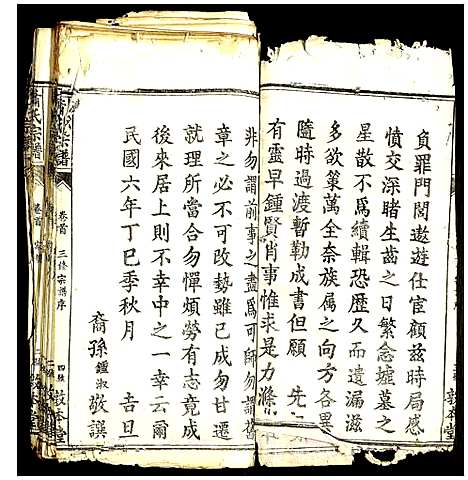 負罪門閭遨遊仕宦顧茲時局感
憤交深睹生齒之日繁念墟墓之
星散不爲續輯恐歷久而遺漏滋
多欲策萬全奈族屬之向方各異
隨時過渡暫勒成書但願　先
有靈早鍾賢肖事惟求是力滌
非勿謂前事之盡爲可師勿謂
章之必不可改勢雖已成勿甘遷
就理所當合勿憚煩勞有志竟成
後來居上則不幸中之一幸云爾
民國六年丁巳季秋月　吉旦
裔孫鍾淑敬譔
卷首　三修宗譜序
敦本堂
氏宗譜
卷首